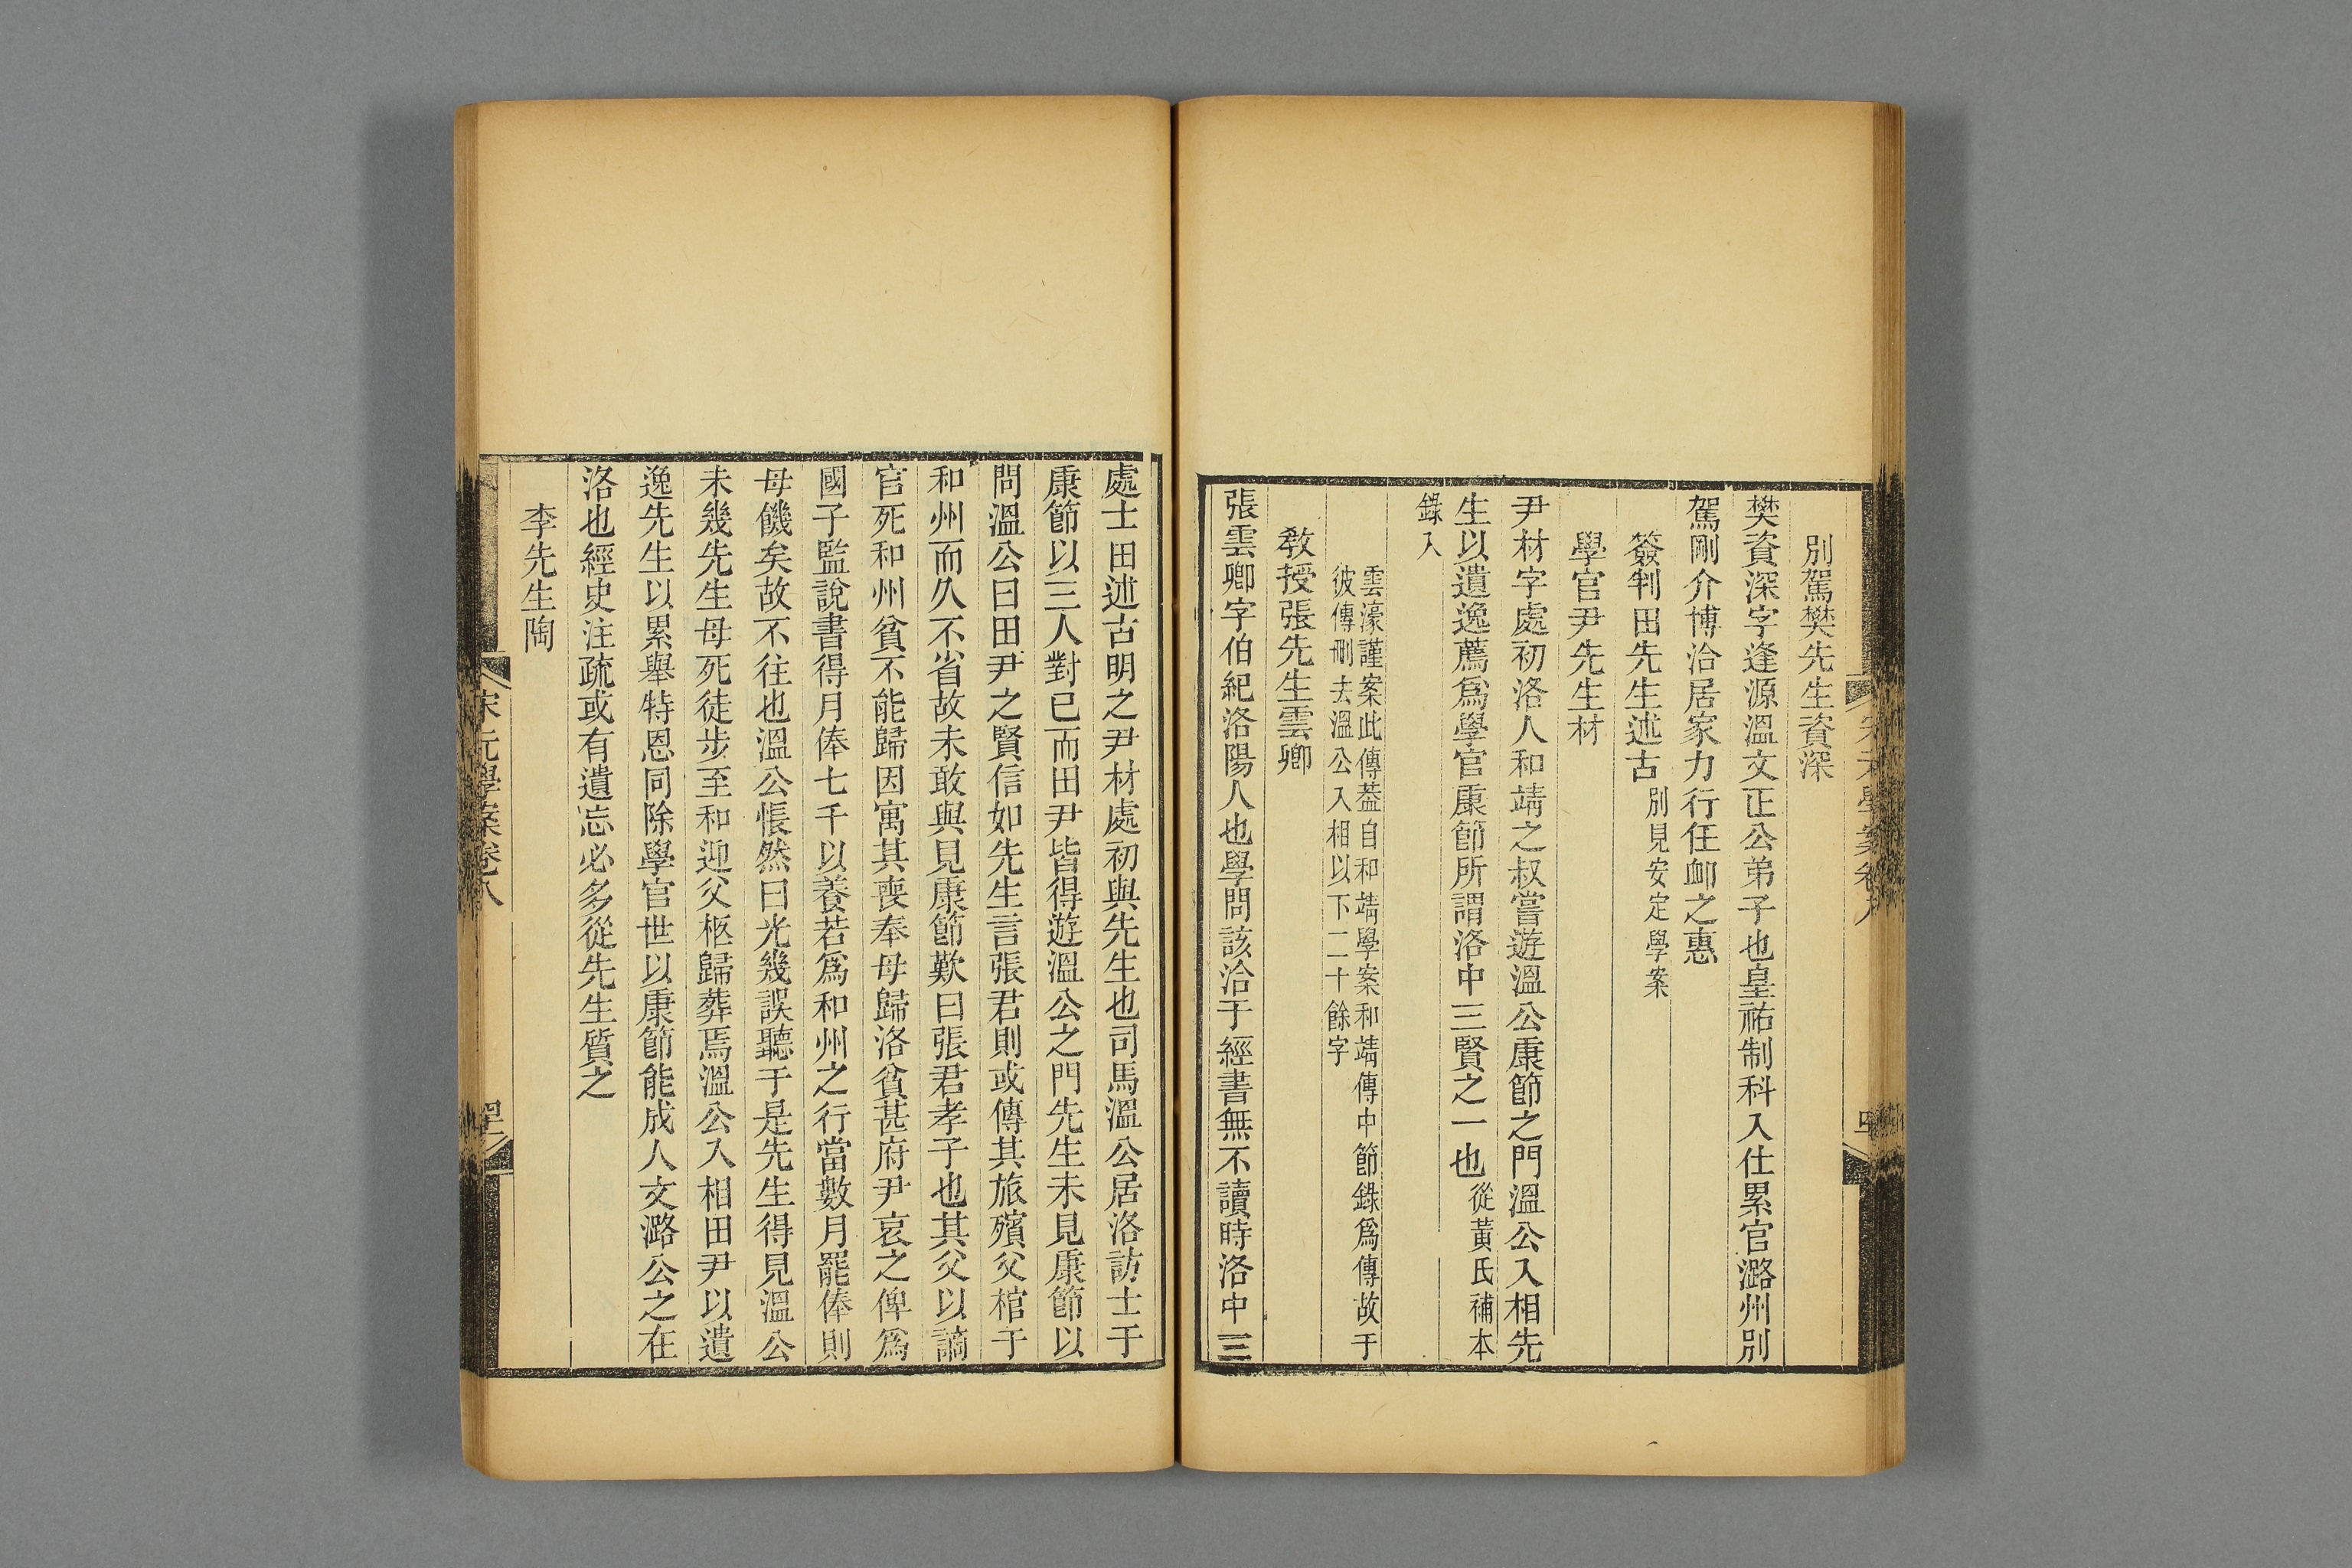 別駕樊先生資深
樊資深字逢源溫文正公弟子也皇祐制科入仕累官潞州別
駕剛介博洽居家力行任卹之惠
簽判田先生述古別見安定學案
學官尹先生材
尹材字處初洛人和靖之叔嘗遊溫公康節之門溫公入相先
生以遺逸薦爲學官康節所謂洛中三賢之一也從黃氏補本
錄入
雲濠謹案此傳葢自和靖學案和靖傳中節錄爲傳故于
彼傳刪去溫公入相以下二十餘字
敎授張先生雲卿
張雲卿字伯紀洛陽人也學問該洽于經書無不讀時洛中三
處士田述古明之尹材處初與先生也司馬溫公居洛訪士于
康節以三人對已而田尹皆得遊溫公之門先生未見康節以
問溫公曰田尹之賢信如先生言張君則或傳其旅殯父棺于
和州而久不省故未敢與見康節歎曰張君孝子也其父以謫
官死和州貧不能歸因寓其喪奉母歸洛貧甚府尹哀之俾爲
國子監說書得月俸七千以養若爲和州之行當數月罷俸則
母饑矣故不往也溫公悵然曰光幾誤聽于是先生得見溫公
未幾先生母死徒步至和迎父柩歸葬焉溫公入相田尹以遺
逸先生以累舉特恩同除學官世以康節能成人文潞公之在
洛也經史注疏或有遺忘必多從先生質之
李先生陶
宋元學案卷八